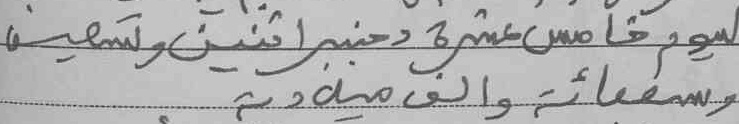 ليوم خامس عشرة دجنبر اثنين وتسعين
وتسعمائة والف ميلادية